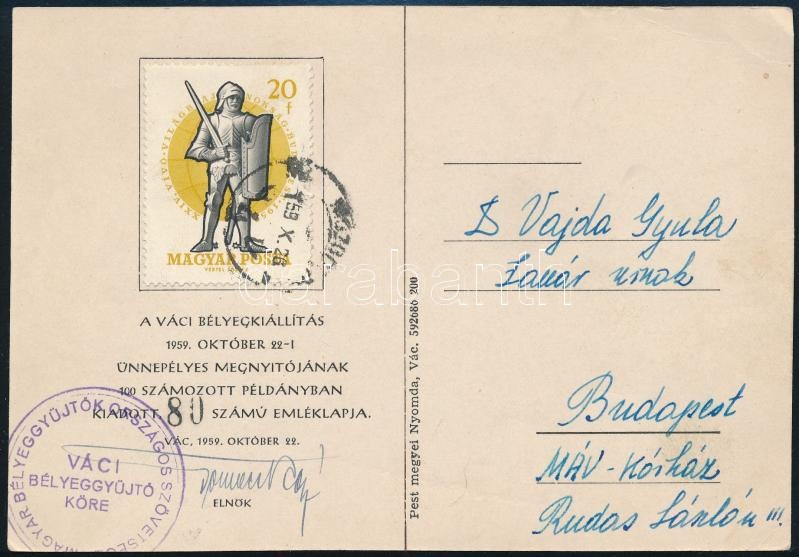 20
f
XXIV. VIVÓ-VILÁGBAJNOKSÁG-BUDAPEST 1959
MAGYAR POSTA
VERTEL JÓZSEF
A VÁCI BÉLYEGKIÁLLÍTÁS
1959. OKTÓBER 22-I
ÜNNEPÉLYES MEGNYITÓJÁNAK
100 SZÁMOZOTT PÉLDÁNYBAN
KIADOTT 80 SZÁMÚ EMLÉKLAPJA.
VÁC, 1959. OKTÓBER 22.
ELNÖK
MAGYAR BÉLYEGGYÜJTŐK ORSZÁGOS SZÖVETSÉGE
VÁCI
BÉLYEGGYÜJTŐ
KÖRE
959 X. 26
darabanth
Pest megyei Nyomda, Vác. 592686 200
Vajda Gyula
Tanár úrnak
Budapest
MÁV-Kórház
Rudas László u.